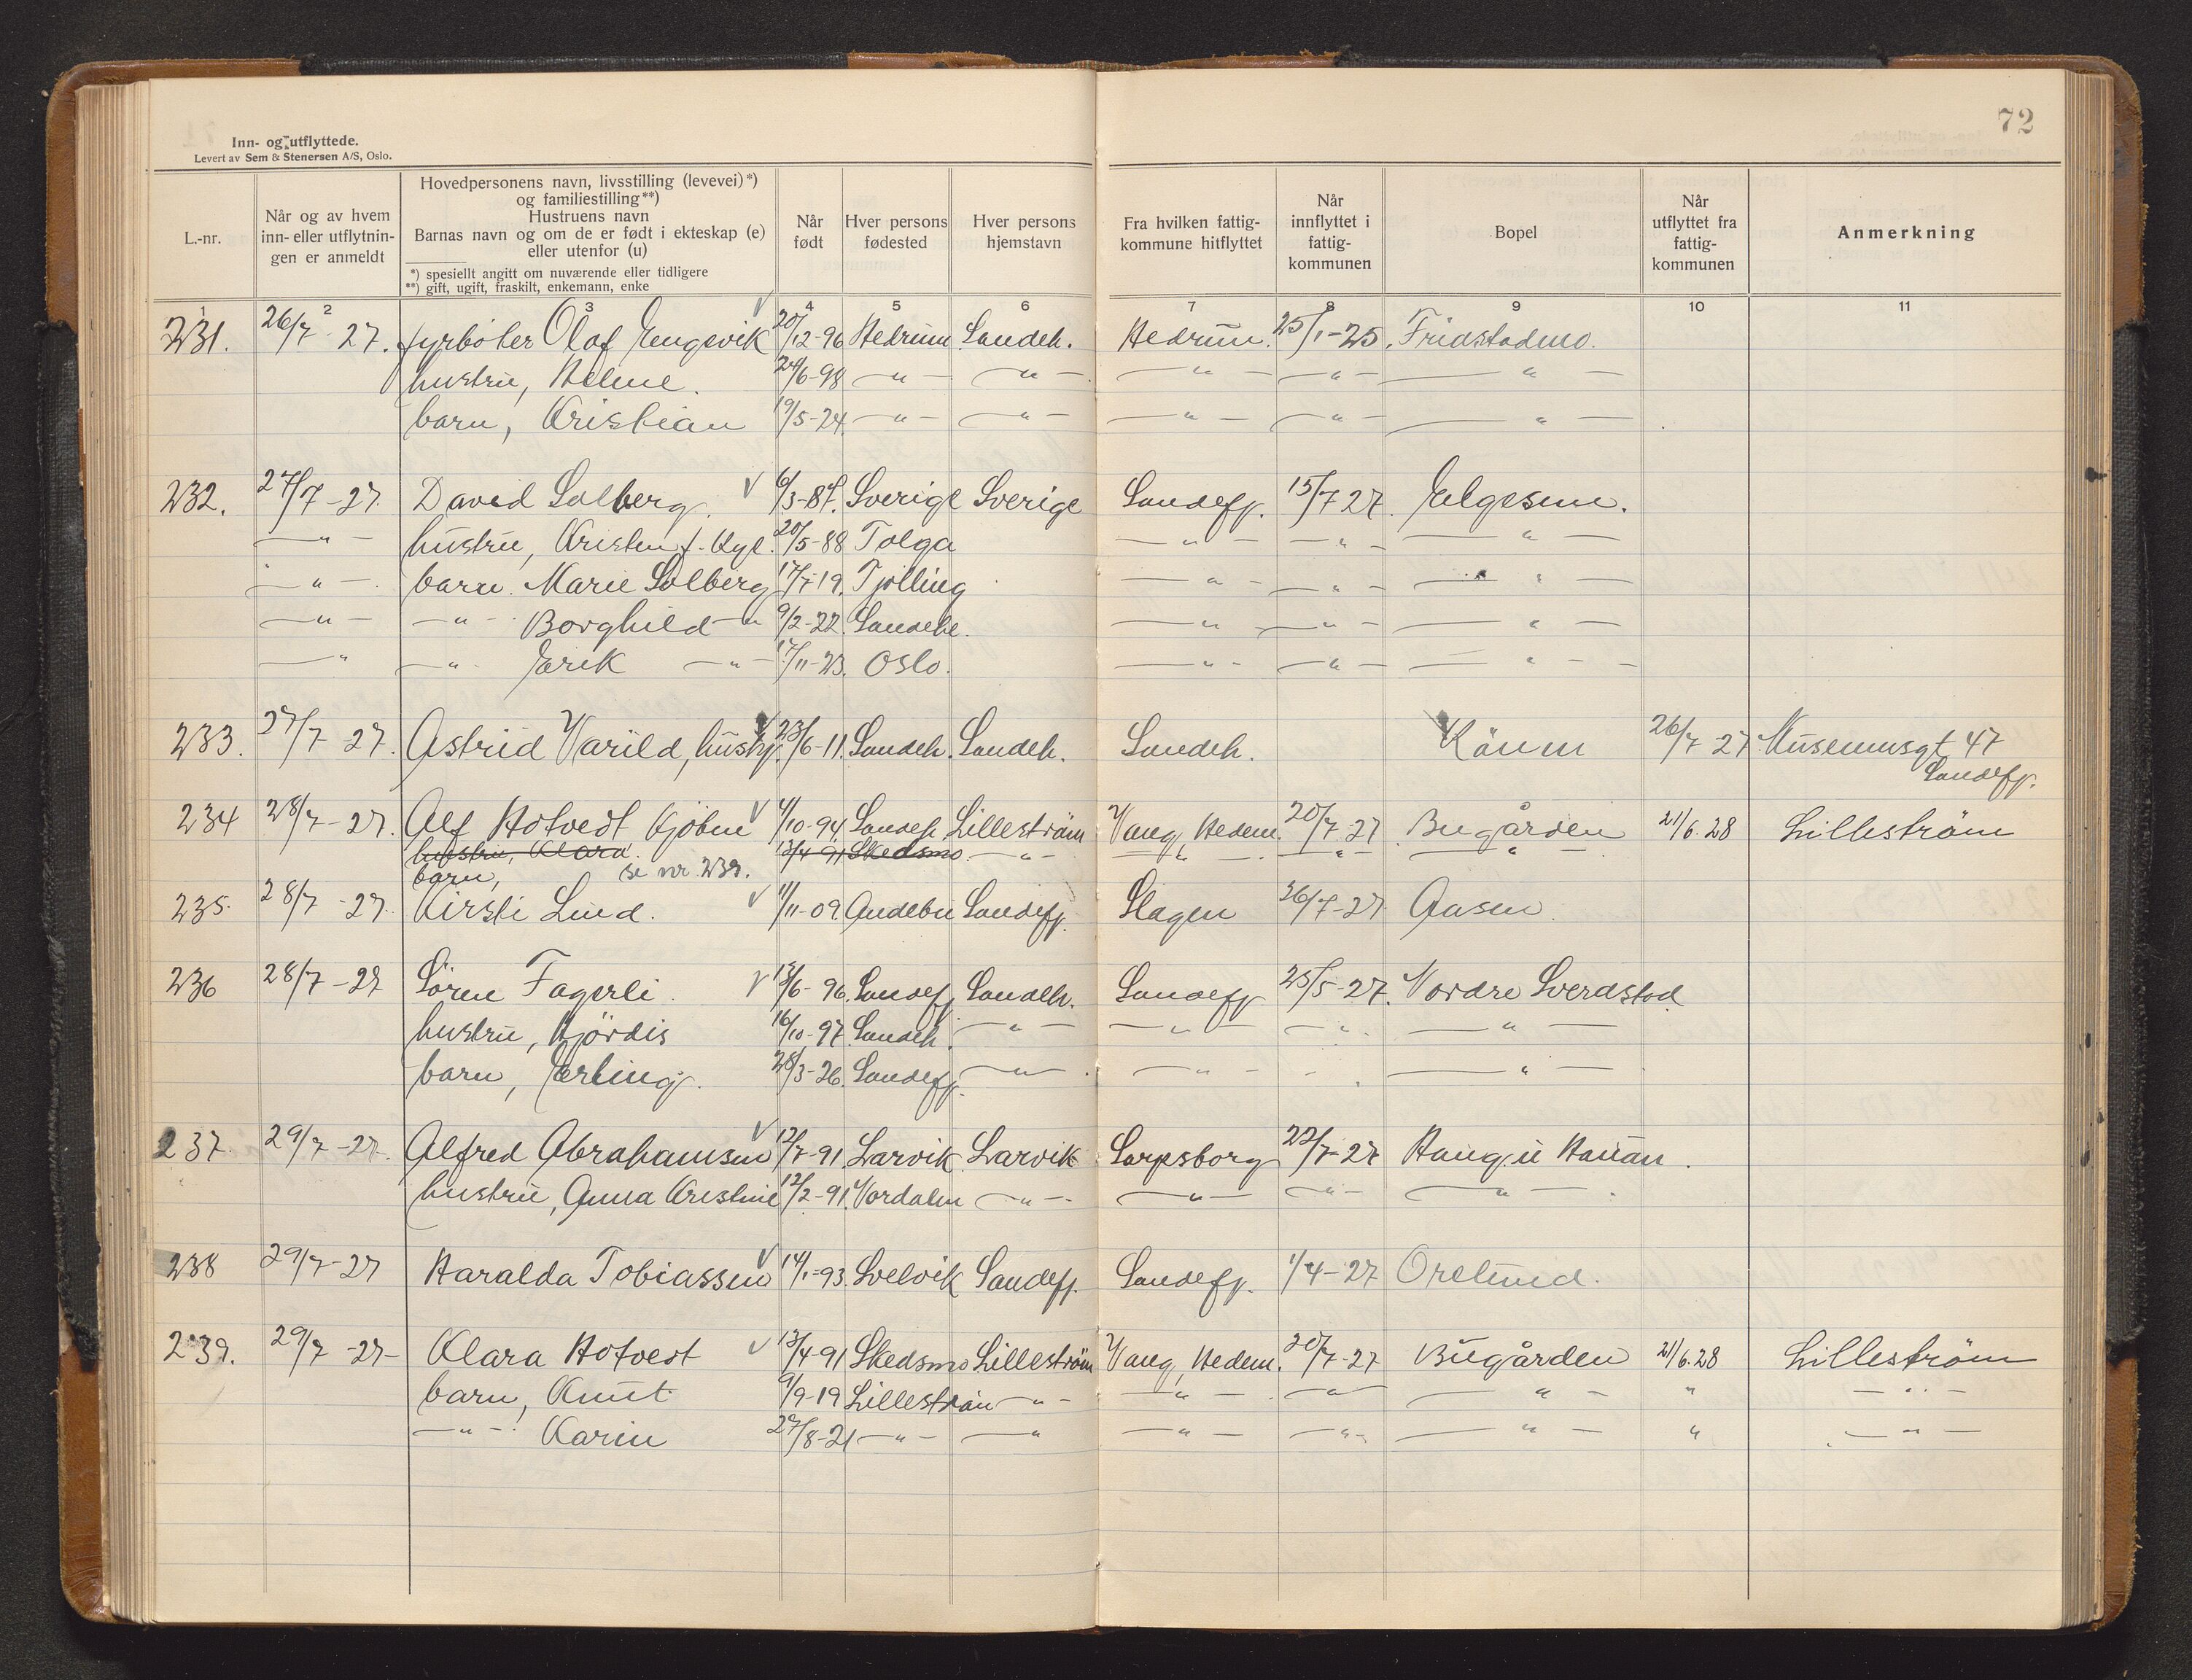 72
Inn- og utflyttede.
Levert av Sem & Stenersen A/S, Oslo.
L.-nr.
Når og av hvem inn- eller utflytnin-gen er anmeldt
Hovedpersonens navn, livsstilling (levevei)*)
og familiestilling**)
Hustruens navn
Barnas navn og om de er født i ekteskap (e)
eller utenfor (u)
*) spesielt angitt om nuværende eller tidligere
**) gift, ugift, fraskilt, enkemann, enke
Når født
Hver persons fødested
Hver persons hjemstavn
Fra hvilken fattig-kommune hitflyttet
Når innflyttet i fattig-kommunen
Bopel
Når utflyttet fra fattig-kommunen
Anmerkning
1 2 3 4 5 6 7 8 9 10 11
231. 26/7 27. fyrböter Olaf Engevik 20/12-96 Hedrum Sandeh. Hedrum. 25/1-25. Fridstadmo.
hustru, Helene. 24/6-98 -"- -"- -"- -"- -"-
barn, Kristian 19/5-24. -"- -"- -"- -"- -"-
232. 27/7-27. David Solberg. 6/3-87. Sverige Sverige Sandefj. 15/7 27. Elgesem.
-"- hustru, Kristen f. 20/5-88 Tolga -"- -"- -"-
-"- barn. Marie Solberg 17/7-19. Tjölling -"- -"- -"-
-"- -"- Borghild -"- 9/2-22. Sandeh. -"- -"- -"-
-"- -"- Erik -"- 17/11-23. Oslo. -"- -"- -"-
233. 27/7 27. Astrid Varild, hushj. 23/6-11. Sandeh. Sandeh. Sandeh. 26/7 27. Museumsgt. 47
Sandefj.
234 28/7-27. Alf Hotvedt Kjöbm 4/10-94. Sandeh Lilleström Vang, Hedem. 20/7-27 Bugården 21/6.28 Lilleström
hustru, Klara. 13/4-91 Skedsmo -"- -"- -"- -"-
barn, se nr. 239.
235. 28/7-27. Kirsti Lind. 4/11-09 Andebu Sandefj. Slagen 26/7-27 Aasen.
236 28/7-27 Sören Fagerli. 13/6-96. Sandefj. Sandeh. Sandefj 25/5-27. Nordre Sverdstad
hustru, Hjördis 16/10-97. Sandeh. -"- -"- -"- -"-
barn, Erling. 28/3-26. Sandefj. -"- -"- -"-
237. 29/7-27. Alfred Abrahamsen 12/7-91. Larvik Larvik Sarpsborg 22/7-27 Haug u Hauan.
hustru, Anna Kristine 12/2-91. Vordalen -"- -"- -"- -"-
238 29/7-27 Haralda Tobiassen 14/1-93. Svelvik Sandefj. Sandefj. 1/4-27 Orelund.
239. 29/7-27- Klara Hotvedt 13/4-91 Skedsmo Lilleström Vang, Hedem. 20/7-27 Bugården 21/6.28 Lilleström
barn, Knut 9/9-19 Lilleström -"- -"- -"- -"- " -"-
-"- Karin 27/8-21 -"- -"- -"- -"- -"- " -"-